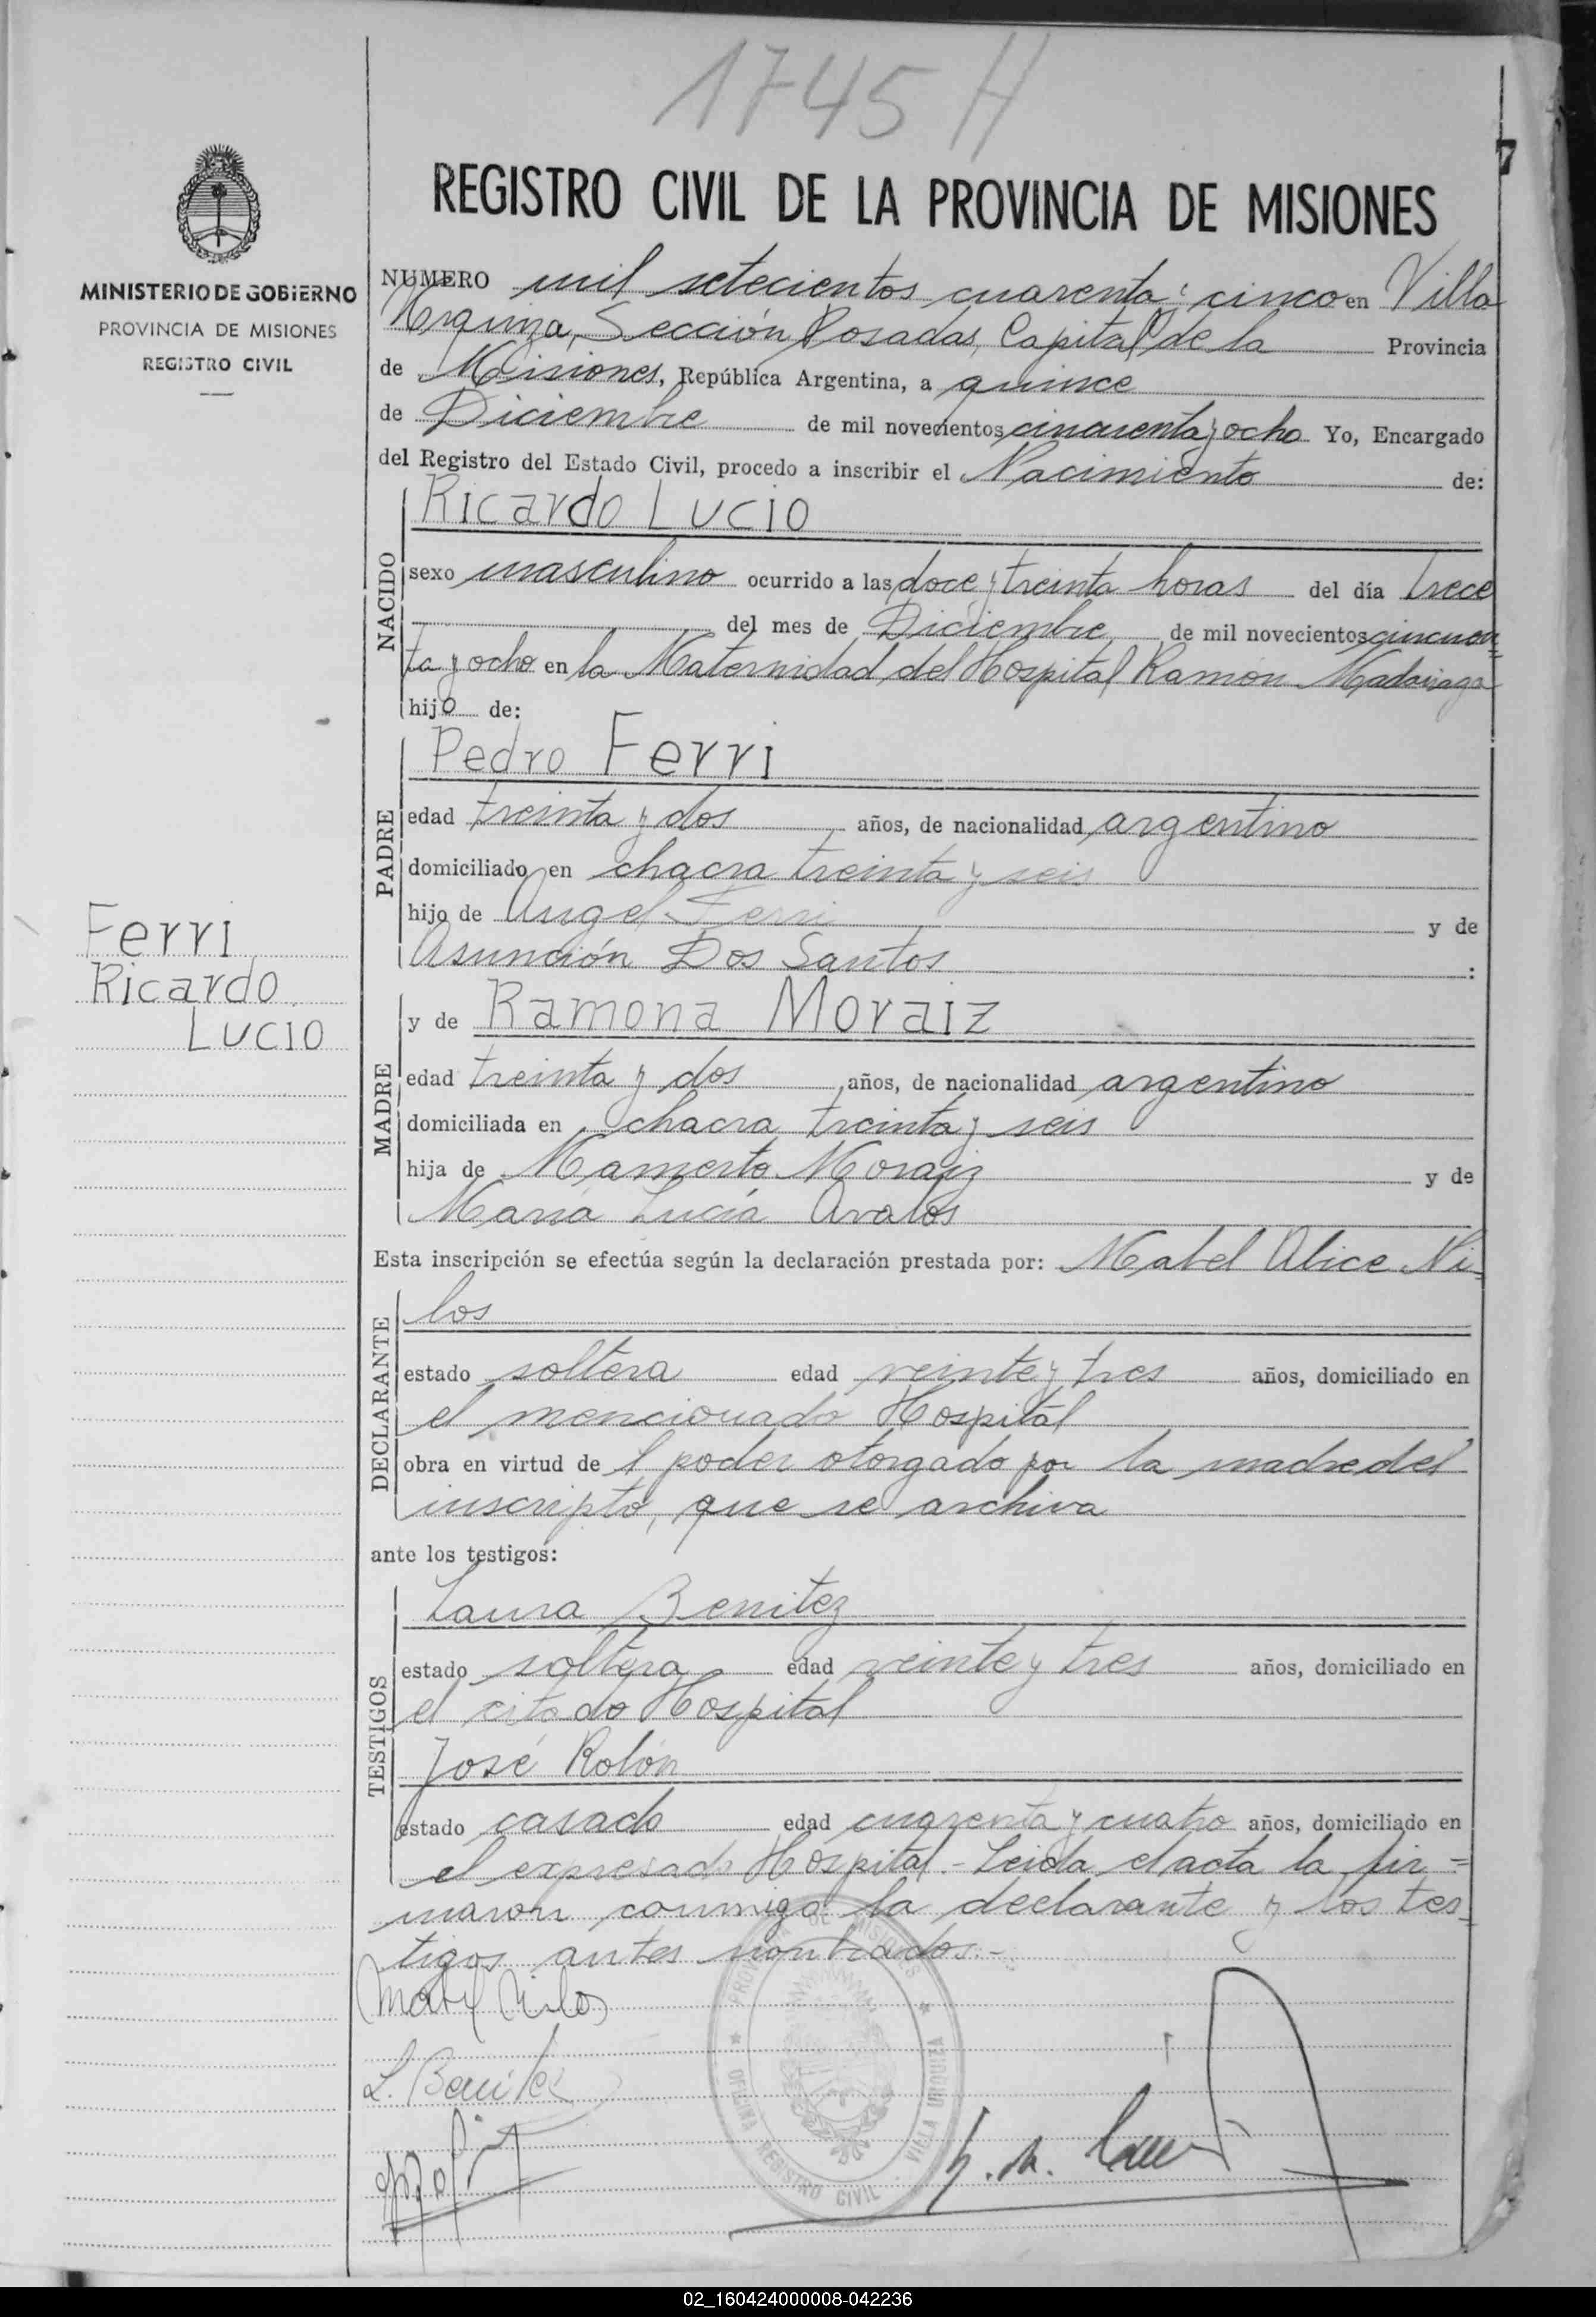 1745 H
7
REGISTRO CIVIL DE LA PROVINCIA DE MISIONES
MINISTERIO DE GOBIERNO
PROVINCIA DE MISIONES
REGISTRO CIVIL
NUMERO mil setecientos cuarenta y cinco en Villa
Urquiza, Sección Posadas, Capital de la Provincia
de Misiones, República Argentina, a quince
de Diciembre de mil novecientos cincuenta y ocho Yo, Encargado
del Registro del Estado Civil, procedo a inscribir el Nacimiento de:
NACIDO
Ricardo Lucio
sexo masculino ocurrido a las doce y treinta horas del día trece
del mes de Diciembre de mil novecientos cincuen-
ta y ocho en la Maternidad del Hospital Ramón Madariaga
hijo de:
PADRE
Pedro Ferri
edad treinta y dos años, de nacionalidad argentino
domiciliado en chacra treinta y seis
hijo de Angel Ferri y de
Asunción Dos Santos :
Ferri
Ricardo
Lucio
MADRE
y de Ramona Moraiz
edad treinta y dos años, de nacionalidad argentino
domiciliada en chacra treinta y seis
hija de Mamerto Moraiz y de
María Lucía Avalos
Esta inscripción se efectúa según la declaración prestada por: Mabel Alice Ni-
DECLARANTE
los
estado soltera edad veinte y tres años, domiciliado en
el mencionado Hospital
obra en virtud de l poder otorgado por la madre del
inscripto, que se archiva
ante los testigos:
TESTIGOS
Laura Benitez
estado soltera edad veinte y tres años, domiciliado en
el citado Hospital
José Rolón
estado casado edad cuarenta y cuatro años, domiciliado en
el expresado Hospital.- Leida el acta la fir=
maron conmigo la declarante y los tes-
tigos antes nombrados.-
Mabel Nilos
L. Benitez
PROVINCIA DE MISIONES
OFICINA REGISTRO CIVIL VILLA URQUIZA
02_160424000008-042236